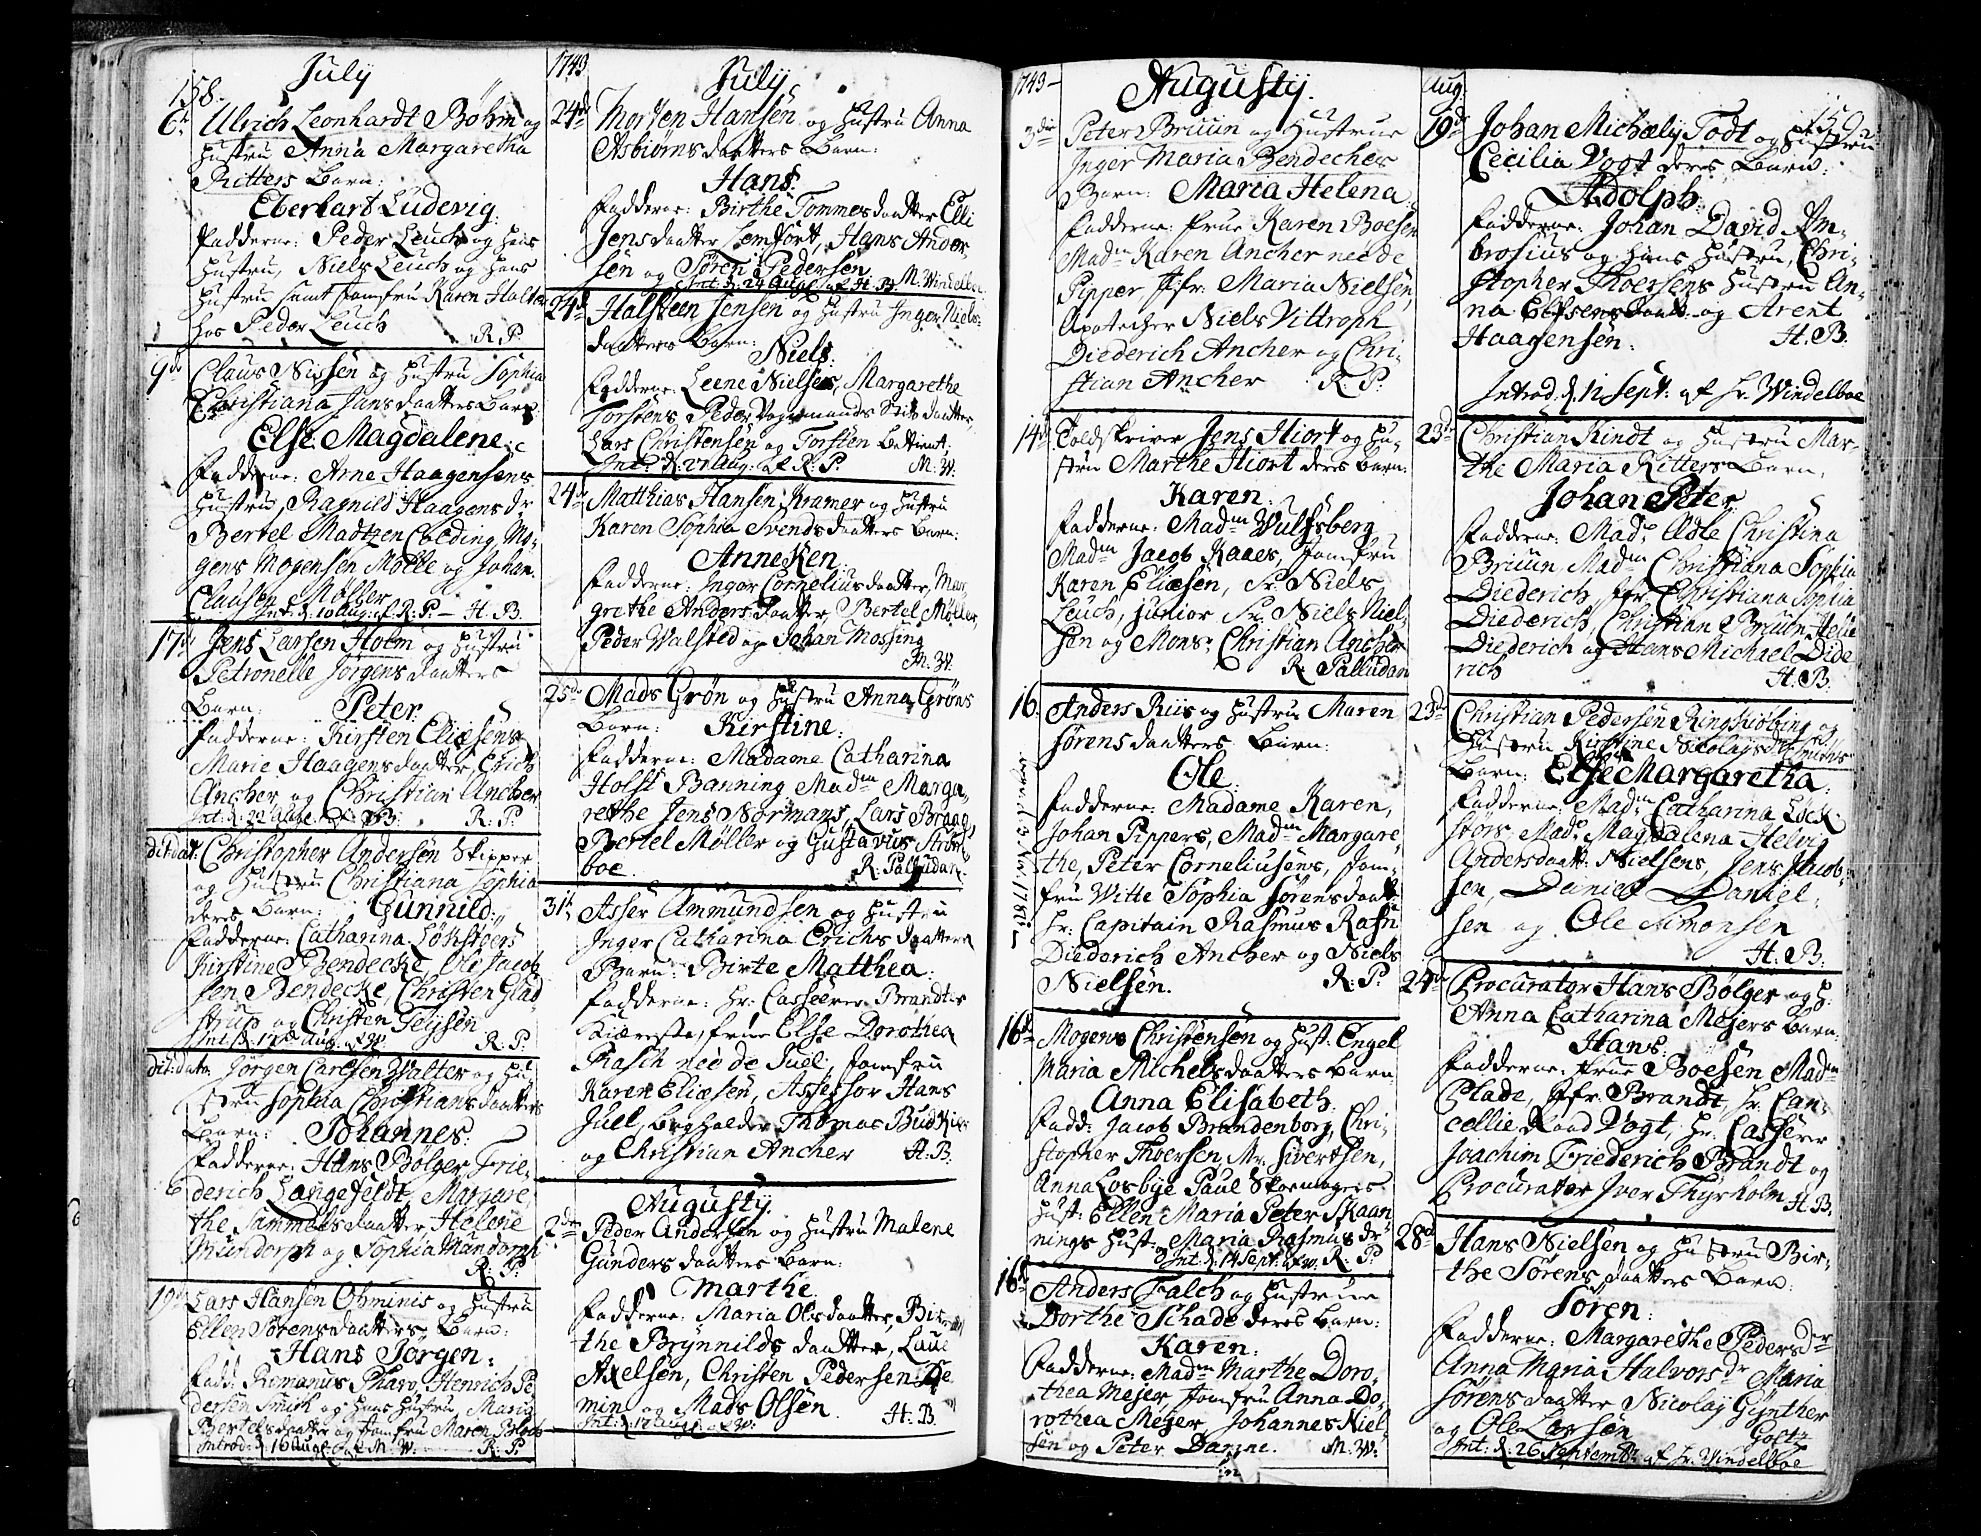 158.
July
6t Ulrich Leonhardt Bøhm og
Hustru Anna Margaretha
Ritters Barn:
Eberhart Ludevig.
Fadderne: Peder Leuch og hans
Hustru, Niels Leuch og hans
Hustru samt Jomfru Karen Holter
hos Peder Leuch R. P.
9de Claus Nissen og Hustru Sophia
Christiana Jansdaatters Barn
Else Magdalene:
Fadderne: Arne Haagensens
Hustru, Ragnild Haagensdr
Bertel Madtzen Colding Mo-
gens Mogensen Mølle og Johan
Clausen Møller
Int. d. 10 Aug. af R: P— H. B.
17de Jens Larsen Holm og Hustru
Petronelle Jørgensdaatters
Barn: Peter.
Fadderne: Kirsten Eliæsens
Marie Haagensdaatter, Erich
Ancher og Christian Ancher
Int: d: 22 Aug. R: P.
dit: dat: Christopher Andersen Skipper
og Hustru Christiana Sophia
deres Barn: Gunnild:
Fadderne: Catharina Løkstøers
Kirstine Bendecke, Ole Jacob
sen Bendecke, Christen Glad
strup og Christen Teijsen
Int. d. 17 Aug. af W. R. P.
dit: dato Jørgen Carlsen Walter og Hu-
stru Sophia Christiansdaatters
Barn: Johannes:
Fadderne: Hans Bølger Frie-
derich Langefeldt, Margare-
the Sammelsdaatter Helene
Mundorph og Sophia Mundorph
R: P:
19de Lars Hansen Ohminis og Hustru
Ellen Sørensdaatters Barn:
Hans Jørgen:
Fadd: Romanus Pharo, Henrich Pe-
dersen Smith og hans Hustru Maria
Bertelsdaatter og Jomfru Maren Bloch
Introd: d. 16 Aug. af M. W. R: P.
1743 July
24de Morten Hansen og Hustru Anna
Asbiørnsdaatters Barn:
Hans:
Fadderne: Birthe Tommesdaatter Elli
Jensdaatter Lemfort, Hans Ander-
sen og Søren Pedersen
Int. d. 24 Aug. af H. B. M. Windelboe
24de Halsteen Jensen og Hustru Inger Niels-
daatters Barn: Niels:
Fadderne: Leene Nielses, Margarethe
Torstens, Peder Vognmands Stifdaatter,
Lars Christensen og Torsten Betient,
Int: d: 27 Aug: af R: P: M: W.
24de Matthias Hansen Kramer og Hustru
Karen Sophia Svendsdaatters Barn:
Anneken
Fadderne: Inger Corneliusdaatter, Mar-
grethe Andersdaatter, Bertel Møller
Peder Walsted og Johan Mossing
M: W.
25de Mads Grøn og Hustru Anna Grøns
Barn: Kirstine:
Fadderne: Madame Catharina
Holst Banning Madm Marga-
rethe Jens Normans, Lars Braag
Bertel Møller og Gustavius Strøel-
boe. R: Palludan.
31te Asser Ammundsen og Hustru
Inger Catharina Erichsdaatters
Barn: Birte Matthea.
Fadderne: Hr: Casseerer Brandts
Kiæreste, Frue Else Dorothea
Rasch neé de Juel, Jomfru
Karen Eliæsen, Assessor Hans
Juel, Bogholder Thomas Budkin
og Christian Ancher H: B.
Augustÿ
2den Peder Andersen og Hustru Malene
Gundersdaatters Barn:
Marthe
Fadderne: Maria Olsdaatter, Bir-
the Brÿnnildsdaatter, Laue
Axelsen, Christen Pedersen De-
min og Mads Olsen.
Int: d. 17 Aug. af W: H: B.
1743—
Augustÿ.
3die Peter Bruun og Hustrue
Inger Maria Bendeches
Barn: Maria Helena.
Fadderne: Frue Karen Boesen
Madm Karen Ancher neé de
Pipper Jfr: Maria Nielsen,
Apotecher Niels Vittroph
Diederich Ancher og Chri-
stian Ancher R: P:
14de Toldskriver Jens Hiort og Hu-
stru Marthe Hiort deres Barn:
Karen:
Fadderne: Madm Wulfsberg
Madm Jacob Kaaes, Jomfru
Karen Eliæsen, Sr. Niels
Leuch, junior Sr. Niels Niel-
sen og Monsr Christian Ancher
R: Palludan
16. Anders Riis og Hustru Maren
Sørensdaatters Barn:
Ole.
Fadderne: Madame Karen,
Johan Pippers, Madm Margare-
the, Peter Corneliusens, Jom-
fru Witte Sophia Sørensdaatr
Hr: Capitain Rasmus Rasn
Diederich Ancher og Niels
Nielsen. R: P:
16de Mogens Christensen og Hust: Engel
Maria Michelsdaatters Barn
Anna Elisabeth.
Fadd: Jacob Brandenborg, Chri-
stopher Thoersen, Mr. Sivertsen,
Anna Losbÿe Paul Skoemagers
Hust: Ellen Maria Peter Skaan-
nings Hust. Maria Rasmusdr
Int. d. 14 Sept. af W. R: P:
16de Anders Falch og Hustrue
Dorthe Schade deres Barn:
Karen:
Fadderne: Madm Marthe Doro-
thea Mejer Jomfru Anna Do-
rothea Mejer Johannes Niel-
sen og Peter Danne. M: W:
Aug. 159.
19de Johan Michælÿ Todt og Hustru
Cecilia Vogt deres Barn:
Adolph:
Fadderne: Johan David Am-
brosius og hans Hustru, Chri-
stopher Thoersens Hustru An-
na Elefsensdaatr og Arent
Haagensen. H. B.
Introd. d. 12 Sept: af Hr. Windelboe
23de Christian Kindt og Hustru Mar-
the Maria Ritters Barn.
Johan Peter
Fadderne: Made Adle Christina
Bruun, Madm Christiana Sophia
Diederich, Jfr. Christiana Sophia
Diederich, Christian Bruun, Helle
Diederich og Hans Michael Dide
rich H. B.
23de Christian Pedersen Ringkiøbing og
Hustru Kirstine Nicolajsdr
Barn: Else Margaretha.
Fadderne: Madm Catharina Løck-
størs Made Magdalena Helvi
Andersdaatr: Nielsens, Jens Jacob-
sen, Daniel Daniel-
sen og Ole Simonsen
H. B:
24de Procurator Hans Bølger og H:
Anna Catharina Mejers Barn:
Hans:
Fadderne: Frue Boesen Madm
Plade, Jfr: Brandt, Hr: Can-
cellie Raad Vogt, Hr: Casserer
Joachim Friederich Brandt og
Procurator Iver Thÿrholm H: B:
28de Hans Nielsen og Hustru Bir-
the Sørensdaatters Barn:
Søren:
Fadderne: Margarethe Pedersdr
Anna Maria Halvorsdr Maria
Sørensdaatter Nicolaj Gÿnther
og Ole Larsen
Int: d: 26 Septembr af Hr. Windelboe